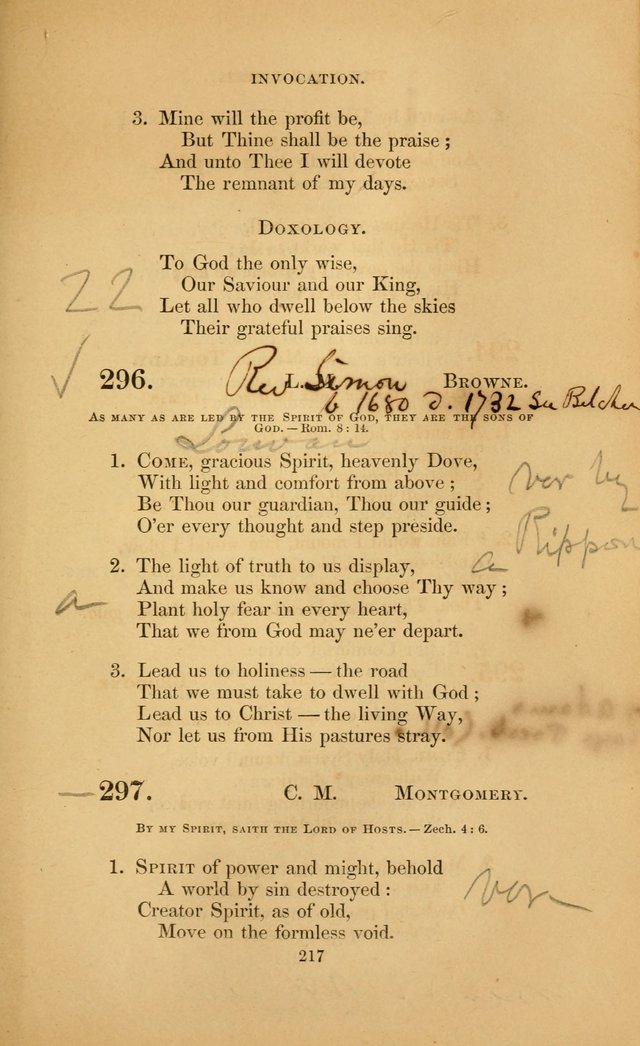 INVOCATION.
3. Mine will the profit be,
But Thine shall be the praise ;
And unto Thee I will devote
The remnant of my days.
DOXOLOGY.
To God the only wise,
Our Saviour and our King,
22
Let all who dwell below the skies
Their grateful praises sing.
√ 296. Rev L. Simon BROWNE.
b 1680 d. 1732 See Belcher
AS MANY AS ARE LED BY THE SPIRIT OF GOD, THEY ARE THE SONS OF
GOD. — Rom. 8 : 14.
Louvan
1. COME, gracious Spirit, heavenly Dove,
With light and comfort from above ;
ver by
Be Thou our guardian, Thou our guide ;
O'er every thought and step preside.
Rippon
2. The light of truth to us display, a
And make us know and choose Thy way ;
a Plant holy fear in every heart,
That we from God may ne'er depart.
3. Lead us to holiness — the road
That we must take to dwell with God ;
Lead us to Christ — the living Way,
Nor let us from His pastures stray.
— 297. C. M. MONTGOMERY.
BY MY SPIRIT, SAITH THE LORD OF HOSTS. — Zech. 4 : 6.
1. SPIRIT of power and might, behold
A world by sin destroyed :
ver
Creator Spirit, as of old,
Move on the formless void.
217